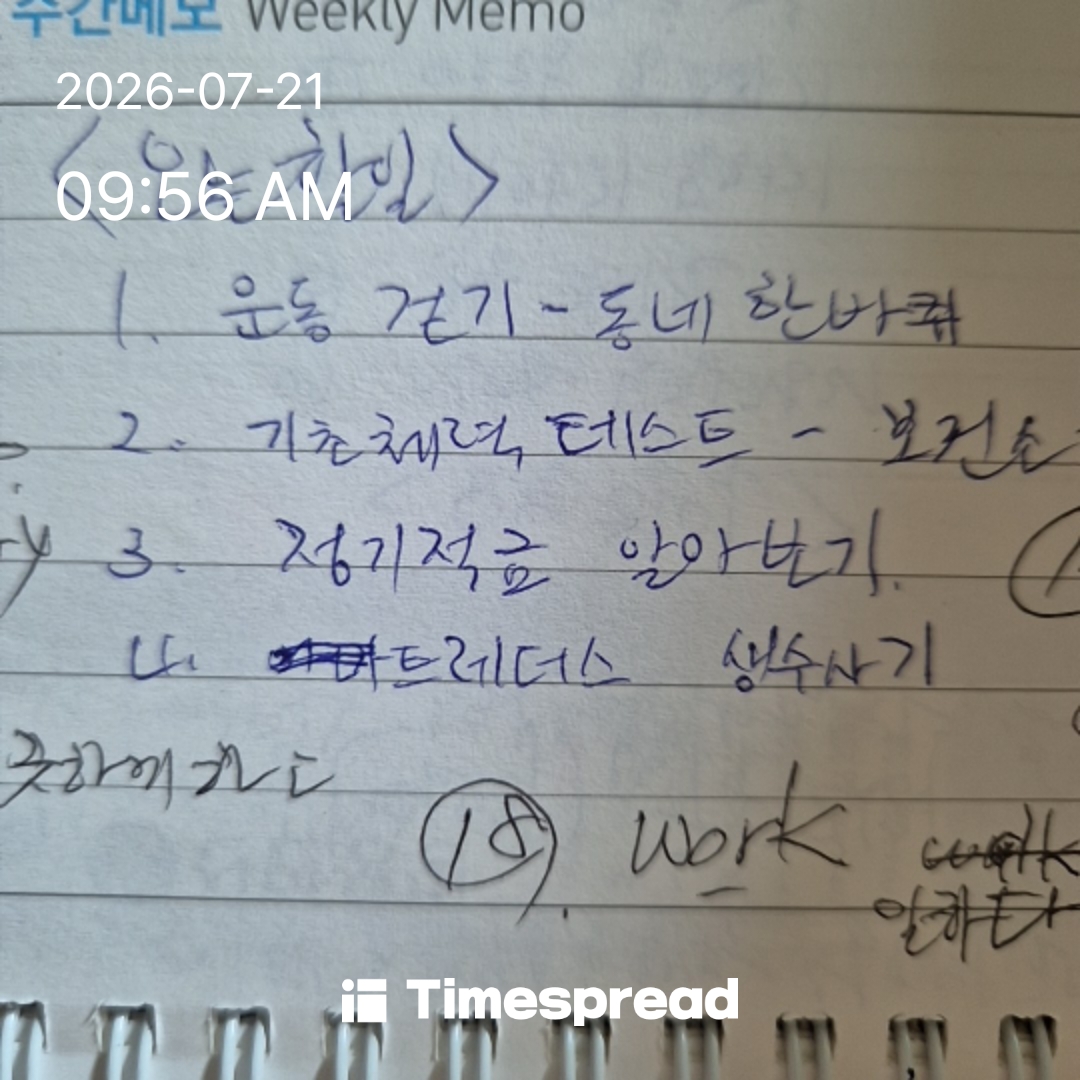 주간메모 Weekly Memo
2026-07-21
<오늘 할일>
09:56 AM
1. 운동 걷기 - 동네 한바퀴
2. 기초체력 테스트 - 보건소
3. 정기적금 알아보기.
4. 트레더스 생수사기
18). work
일하다
Timespread